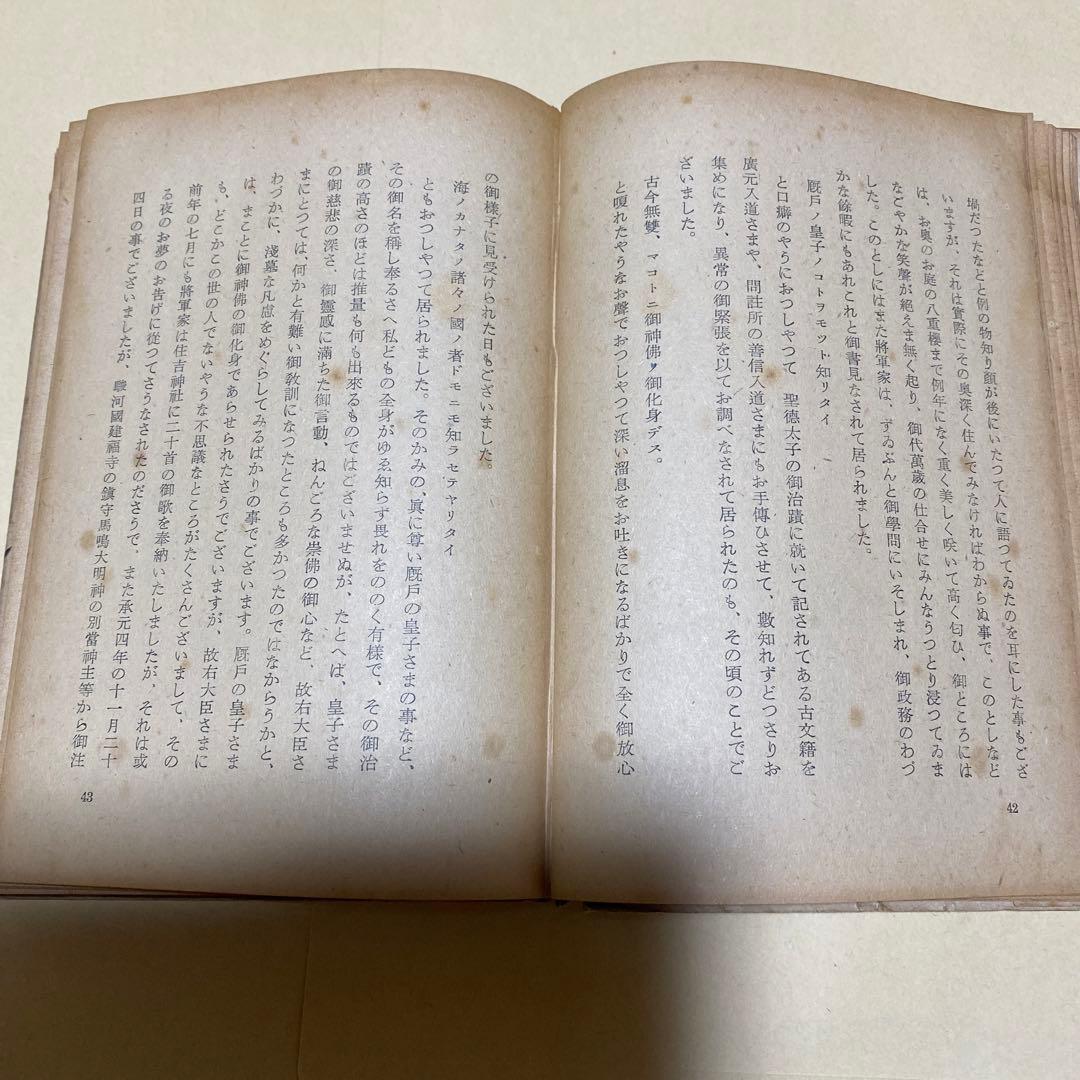 塲だつたなどと例の物知り顔が後にいたつて人に語つてゐたのを耳にした事もござ
いますが、それは實際にその奥深く住んでみなければわからぬ事で、このとしなど
は、お奥のお庭の八重櫻まで例年になく重く美しく咲いて高く匂ひ、御ところには
なごやかな笑聲が絶えま無く起り、御代萬歳の仕合せにみんなうつとり浸つてゐま
した。このとしにはまた將軍家は、ずゐぶんと御學問にいそしまれ、御政務のわづ
かな餘暇にもあれこれと御書見なされて居られました。
厩戸ノ皇子ノコトヲモツト知リタイ
と口癖のやうにおつしやつて 聖德太子の御治蹟に就いて記されてある古文籍を
廣元入道さまや、問註所の善信入道さまにもお手傳ひさせて、數知れずどつさりお
集めになり、異常の御緊張を以てお調べなされて居られたのも、その頃のことでご
ざいました。
古今無雙、マコトニ御神佛ノ御化身デス。
と嗄れたやうなお聲でおつしやつて深い溜息をお吐きになるばかりで全く御放心
42
の御樣子に見受けられた日もございました。
海ノカナタノ諸々ノ國ノ者ドモニモ知ラセテヤリタイ
ともおつしやつて居られました。そのかみの、眞に尊い厩戸の皇子さまの事など、
その御名を稱し奉るさへ私どもの全身がゆゑ知らず畏れをののく有樣で、その御治
蹟の高さのほどは推量も何も出來るものではございませぬが、たとへば、皇子さま
の御慈悲の深さ、御靈感に滿ちた御言動、ねんごろな崇佛の御心など、故右大臣さ
まにとつては、何かと有難い御教訓になつたところも多かつたのではなからうかと、
わづかに、淺墓な凡慮をめぐらしてみるばかりの事でございます。厩戸の皇子さま
は、まことに御神佛の御化身であらせられたさうでございますが、故右大臣さまに
も、どこかこの世の人でないやうな不思議なところがたくさんございまして、その
前年の七月にも將軍家は住吉神社に二十首の御歌を奉納いたしましたが、それは或
る夜のお夢のお告げに從つてさうなされたのださうで、また承元四年の十一月二十
四日の事でございましたが、駿河國建福寺の鎭守馬鳴大明神の別當神主等から御注
43